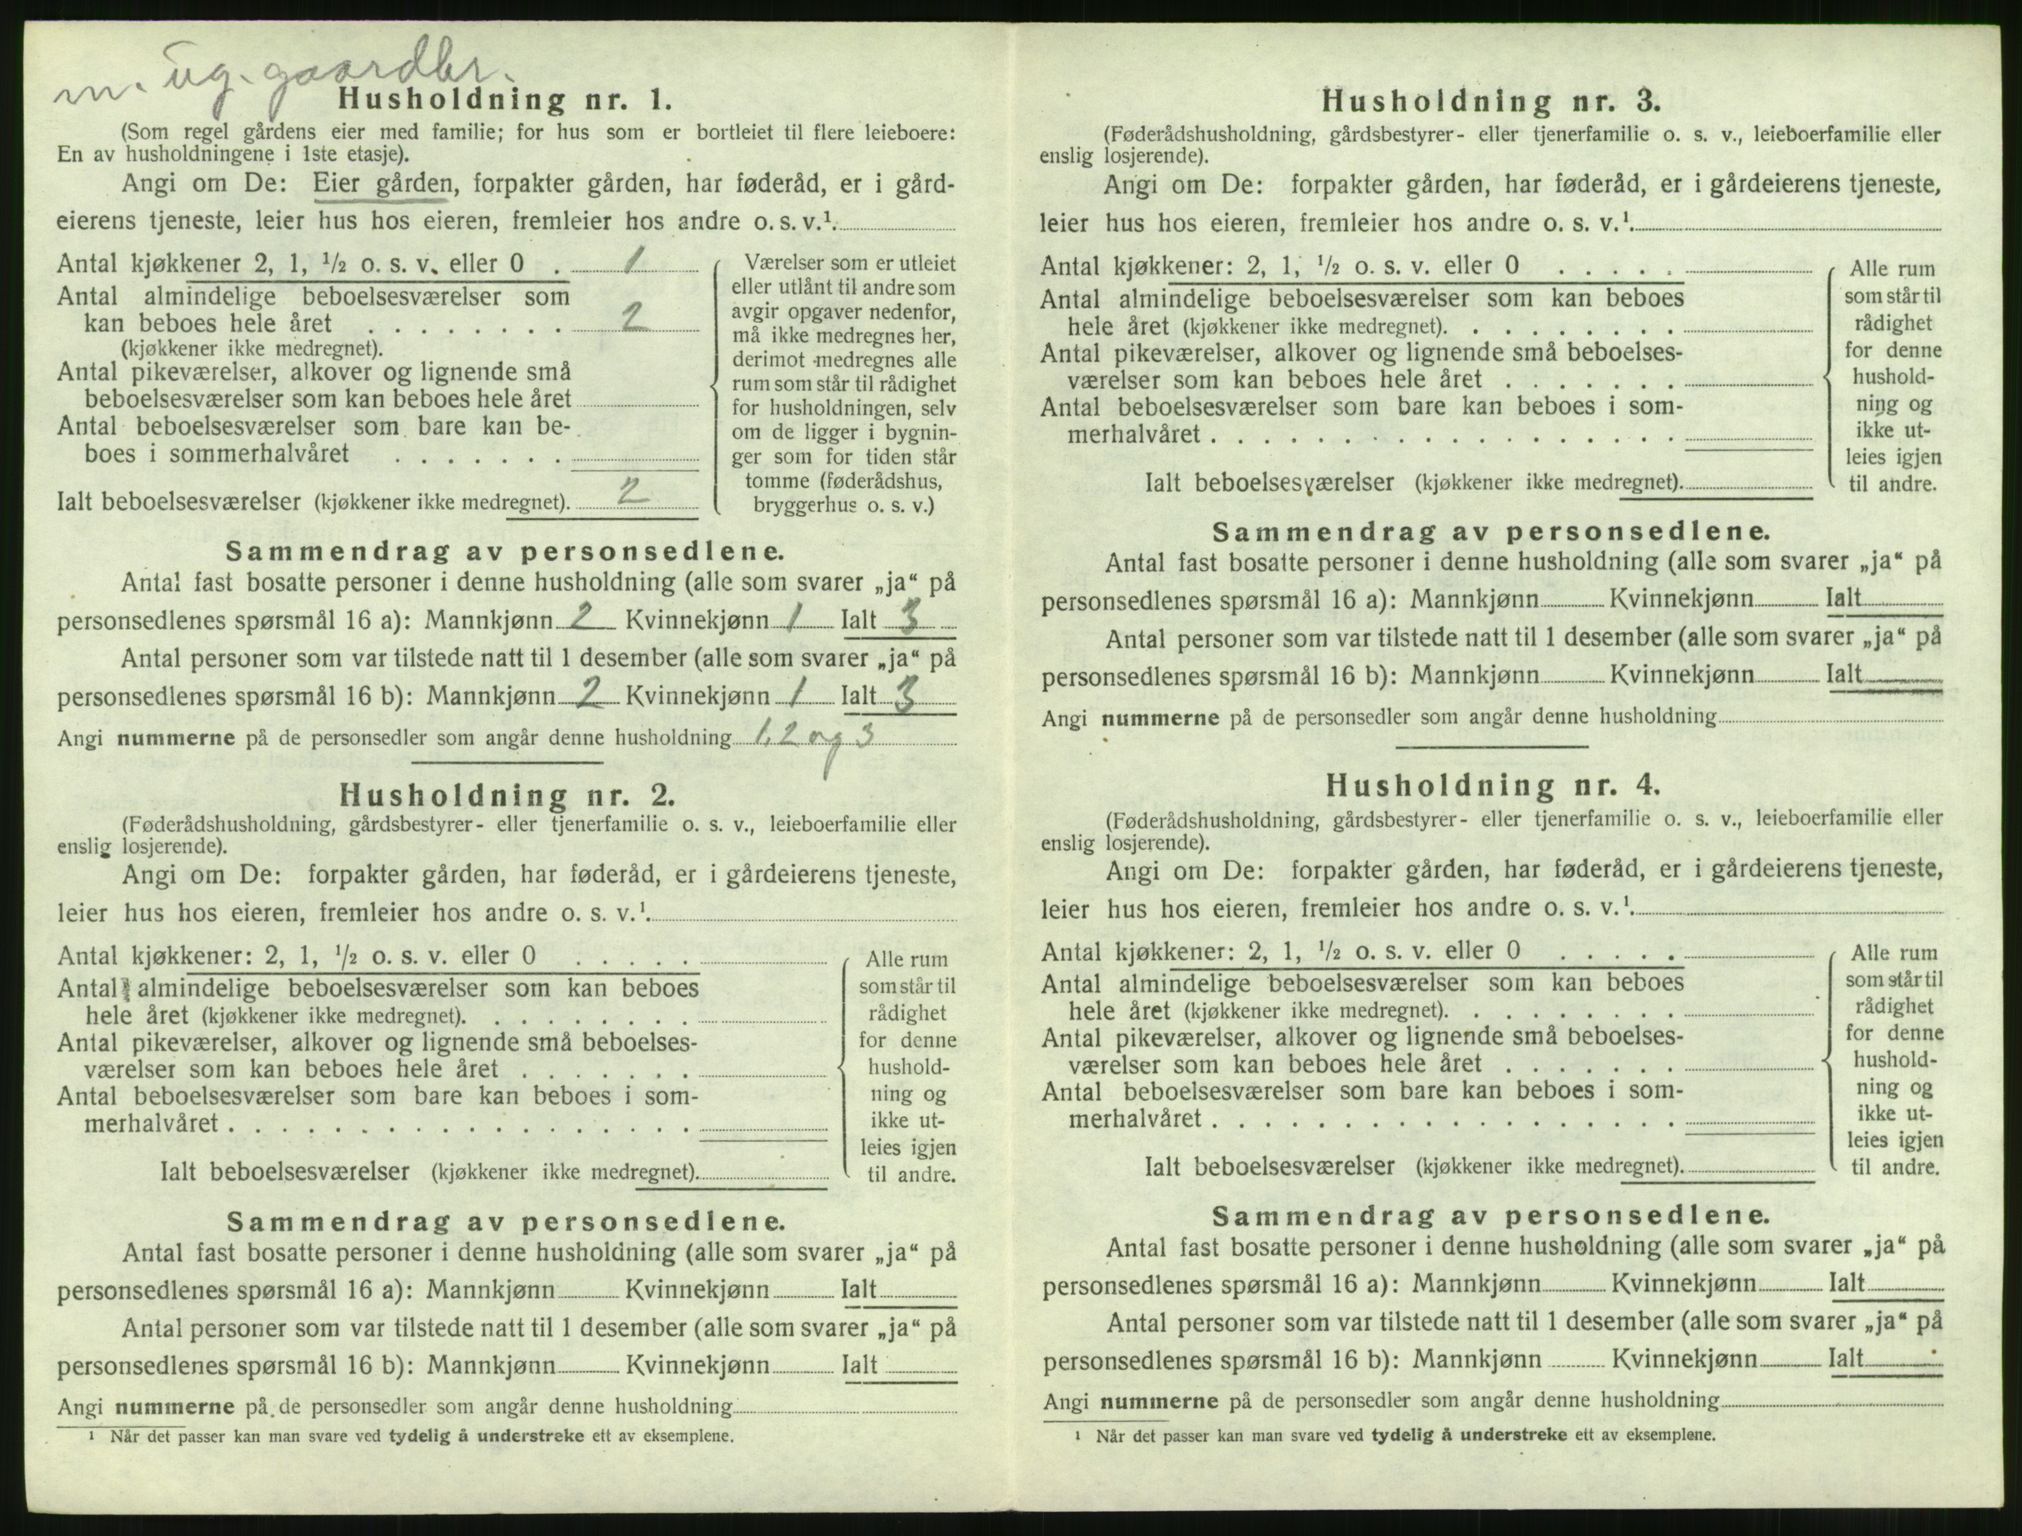 m. ug. gaardbr.
Husholdning nr. 1.
(Som regel gårdens eier med familie; for hus som er bortleiet til flere leieboere:
En av husholdningene i 1ste etasje).
Angi om De: Eier gården, forpakter gården, har føderåd, er i gård-
eierens tjeneste, leier hus hos eieren, fremleier hos andre o. s. v.¹.
Antal kjøkkener 2, 1, ½ o. s. v. eller 0 . 1
Antal almindelige beboelsesværelser som
kan beboes hele året . . . . . . . . 2
(kjøkkener ikke medregnet).
Antal pikeværelser, alkover og lignende små
beboelsesværelser som kan beboes hele året
Antal beboelsesværelser som bare kan be-
boes i sommerhalvåret . . . . . . .
Ialt beboelsesværelser (kjøkkener ikke medregnet). 2
Værelser som er utleiet
eller utlånt til andre som
avgir opgaver nedenfor,
må ikke medregnes her,
derimot medregnes alle
rum som står til rådighet
for husholdningen, selv
om de ligger i bygnin-
ger som for tiden står
tomme (føderådshus,
bryggerhus o. s. v.)
Sammendrag av personsedlene.
Antal fast bosatte personer i denne husholdning (alle som svarer „ja“ på
personsedlenes spørsmål 16 a): Mannkjønn 2 Kvinnekjønn 1 Ialt 3
Antal personer som var tilstede natt til 1 desember (alle som svarer „ja“ på
personsedlenes spørsmål 16 b): Mannkjønn 2 Kvinnekjønn 1 Ialt 3
Angi nummerne på de personsedler som angår denne husholdning 1, 2 og 3
Husholdning nr. 2.
(Føderådshusholdning, gårdsbestyrer- eller tjenerfamilie o. s. v., leieboerfamilie eller
enslig losjerende).
Angi om De: forpakter gården, har føderåd, er i gårdeierens tjeneste,
leier hus hos eieren, fremleier hos andre o. s. v.¹.
Antal kjøkkener: 2, 1, ½ o. s. v. eller 0 . . . . .
Antal almindelige beboelsesværelser som kan beboes
hele året (kjøkkener ikke medregnet). . . . . . . . .
Antal pikeværelser, alkover og lignende små beboelses-
værelser som kan beboes hele året . . . . . . .
Antal beboelsesværelser som bare kan beboes i som-
merhalvåret . . . . . . . . . . . . . . . . . .
Ialt beboelsesværelser (kjøkkener ikke medregnet).
Alle rum
som står til
rådighet
for denne
hushold-
ning og
ikke ut-
leies igjen
til andre.
Sammendrag av personsedlene.
Antal fast bosatte personer i denne husholdning (alle som svarer „ja“ på
personsedlenes spørsmål 16 a): Mannkjønn Kvinnekjønn Ialt
Antal personer som var tilstede natt til 1 desember (alle som svarer „ja“ på
personsedlenes spørsmål 16 b): Mannkjønn Kvinnekjønn Ialt
Angi nummerne på de personsedler som angår denne husholdning
¹ Når det passer kan man svare ved tydelig å understreke ett av eksemplene.
Husholdning nr. 3.
(Føderådshusholdning, gårdsbestyrer- eller tjenerfamilie o. s. v., leieboerfamilie eller
enslig losjerende).
Angi om De: forpakter gården, har føderåd, er i gårdeierens tjeneste,
leier hus hos eieren, fremleier hos andre o. s. v.¹.
Antal kjøkkener: 2, 1, ½ o. s. v. eller 0 . . . . .
Antal almindelige beboelsesværelser som kan beboes
hele året (kjøkkener ikke medregnet). . . . . . . . .
Antal pikeværelser, alkover og lignende små beboelses-
værelser som kan beboes hele året . . . . . . .
Antal beboelsesværelser som bare kan beboes i som-
merhalvåret . . . . . . . . . . . . . . . . . .
Ialt beboelsesværelser (kjøkkener ikke medregnet).
Alle rum
som står til
rådighet
for denne
hushold-
ning og
ikke ut-
leies igjen
til andre.
Sammendrag av personsedlene.
Antal fast bosatte personer i denne husholdning (alle som svarer „ja“ på
personsedlenes spørsmål 16 a): Mannkjønn Kvinnekjønn Ialt
Antal personer som var tilstede natt til 1 desember (alle som svarer „ja“ på
personsedlenes spørsmål 16 b): Mannkjønn Kvinnekjønn Ialt
Angi nummerne på de personsedler som angår denne husholdning
Husholdning nr. 4.
(Føderådshusholdning, gårdsbestyrer- eller tjenerfamilie o. s. v., leieboerfamilie eller
enslig losjerende).
Angi om De: forpakter gården, har føderåd, er i gårdeierens tjeneste,
leier hus hos eieren, fremleier hos andre o. s. v.¹.
Antal kjøkkener: 2, 1, ½ o. s. v. eller 0 . . . . .
Antal almindelige beboelsesværelser som kan beboes
hele året (kjøkkener ikke medregnet). . . . . . . . .
Antal pikeværelser, alkover og lignende små beboelses-
værelser som kan beboes hele året . . . . . . .
Antal beboelsesværelser som bare kan beboes i som-
merhalvåret . . . . . . . . . . . . . . . . . .
Ialt beboelsesværelser (kjøkkener ikke medregnet).
Alle rum
som står til
rådighet
for denne
hushold-
ning og
ikke ut-
leies igjen
til andre.
Sammendrag av personsedlene.
Antal fast bosatte personer i denne husholdning (alle som svarer „ja“ på
personsedlenes spørsmål 16 a): Mannkjønn Kvinnekjønn Ialt
Antal personer som var tilstede natt til 1 desember (alle som svarer „ja“ på
personsedlenes spørsmål 16 b): Mannkjønn Kvinnekjønn Ialt
Angi nummerne på de personsedler som angår denne husholdning
¹ Når det passer kan man svare ved tydelig å understreke ett av eksemplene.